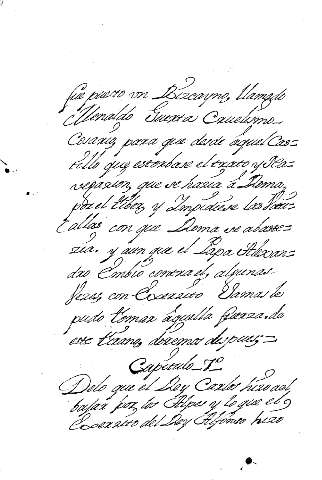 fue puesto vn Bizcayno, llamado
Menaldo Guerra Cruelissimo
Cosario para que desde aquel Cas=
tillo que estorbase el trato y Na=
vegazion, que se hazia à Roma,
por el tiber, y Impidiese las
con que Roma se abaste=
zia. y aun que el Papa Alexan=
dro Embio contra el, algunas
Vezes, con Exercito Iamas le
pudo tomar aquella fuerza. do
este tirano, diremos despues;=
Capitulo 7º
Delo que el Rey Carlos hizo al
baxar por los Alpes y lo que el
Exercito del Rey Alfonso hizo